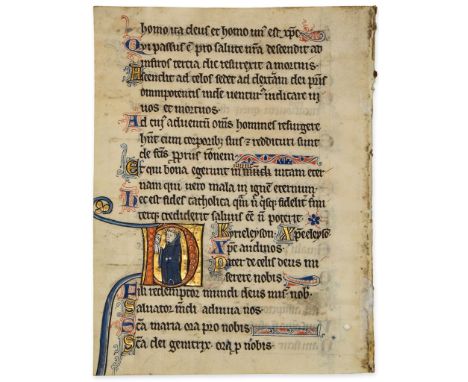 homo ita deus et homo un' est xpc.
Qui passus ē pro salute nr̄a descendit ad
inferos tercia die resurexit a mortuis
Ascendit ad celos sedet ad dexteram dei pr̄is
omnipotentis inde uenturꝰ iudicare ui
uos et mortuos.
Ad cuiꝰ aduentū om̄s homines resurgere
hn̄t cum corporibꝫ suis ⁊ reddituri sunt
de fc̄is pp̄riis rōnem
Et qui bona egerunt ibunt in uitam eter
nam qui uero mala in ignē eternum
Hec est fides catholica quā n̄ qisꝫ fidelit̄ fir
mit̄qꝫ crediderit saluus eē n̄ poterit.
Kyrieleyson. Xpeleyson.
Xpe audi nos.
Pater de celis deus mi
serere nobis
Fili redemptor mundi deus mis̄ nob.
Saluator mūdi adiuua nos.
Sc̄a maria ora pro nobis
Sc̄a dei genitrix. ora ꝓ nobis.